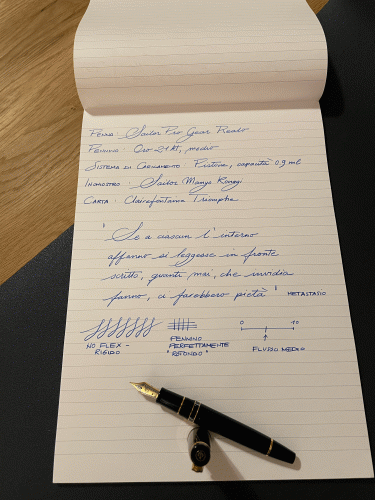 Penna: Sailor Pro Gear Realo
Pennino: Oro 21 Kt, medio
Sistema di Caricamento: Pistone, capacità 0,9 ml
Inchiostro: Sailor Manyo
Carta: Clairefontaine Triomphe
"Se a ciascun l'interno
affanno si leggesse in fronte
scritto, quanti mai, che invidia
fanno, ci farebbero pietà" METASTASIO
NO FLEX -
RIGIDO
PENNINO
PERFETTAMENTE
"ROTONDO"
0 10
FLUSSO MEDIO